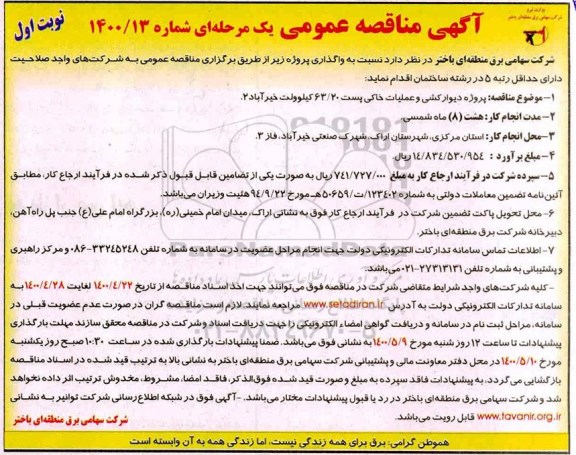 نوبت اول
آگهی مناقصه عمومی یک مرحله‌ای شماره ۱۴۰۰/۱۳
شرکت سهامی برق منطقه‌ای باختر
شرکت سهامی برق منطقه‌ای باختر در نظر دارد نسبت به واگذاری پروژه زیر از طریق برگزاری مناقصه عمومی به شرکت‌های واجد صلاحیت
دارای حداقل رتبه ۵ در رشته ساختمان اقدام نماید:
۱-موضوع مناقصه: پروژه دیوارکشی و عملیات خاکی پست ۶۳/۲۰ کیلوولت خیرآباد۲.
۲-مدت انجام کار: هشت (۸) ماه شمسی.
۳-محل انجام کار: استان مرکزی، شهرستان اراک، شهرک صنعتی خیرآباد، فاز ۳.
۴-مبلغ برآورد : ۱۴/۸۳۴/۵۳۰/۹۵۴ ریال.
۵-سپرده شرکت در فرآیند ارجاع کار به مبلغ ۷۴۱/۷۲۷/۰۰۰ ریال به صورت یکی از تضامین قابل قبول ذکر شده در فرآیند ارجاع کار، مطابق
آئین‌نامه تضمین معاملات دولتی به شماره ۱۲۳۴۰۲/ت۵۰۶۵۹/هـ مورخ ۹۴/۹/۲۲ هئیت وزیران می‌باشد.
۶-محل تحویل پاکت تضمین شرکت در فرآیند ارجاع کار فوق به نشانی اراک، میدان امام خمینی(ره)، بزرگراه امام علی(ع) جنب پل راه‌آهن،
دبیرخانه شرکت برق منطقه‌ای باختر.
۷-اطلاعات تماس سامانه تدارکات الکترونیکی دولت جهت انجام مراحل عضویت در سامانه به شماره تلفن ۳۳۲۴۵۲۴۸-۰۸۶ و مرکز راهبری
و پشتیبانی به شماره تلفن ۲۷۳۱۳۱۳۱-۰۲۱می‌باشد.
-کلیه شرکت‌های واجد شرایط متقاضی شرکت در مناقصه فوق می‌توانند جهت اخذ اسناد مناقصه از تاریخ ۱۴۰۰/۴/۲۲ لغایت ۱۴۰۰/۴/۲۸ به
سامانه تدارکات الکترونیکی دولت به آدرس www.setadiran.ir مراجعه نمایند. لازم است مناقصه گران در صورت عدم عضویت قبلی در
سامانه، مراحل ثبت نام در سامانه و دریافت گواهی امضاء الکترونیکی را جهت دریافت اسناد و شرکت در مناقصه محقق سازند. مهلت بارگذاری
پیشنهادات تا ساعت ۱۲ روز شنبه مورخ ۱۴۰۰/۵/۹ به نشانی فوق می‌باشد. ضمنا پیشنهادات بارگذاری شده در ساعت ۱۰:۳۰ صبح روز یکشنبه
مورخ ۱۴۰۰/۵/۱۰ در محل دفتر معاونت مالی و پشتیبانی شرکت سهامی برق منطقه‌ای باختر به نشانی بالا به ترتیب قید شده در اسناد مناقصه
بازگشایی می‌گردد. به پیشنهادات فاقد سپرده به مبلغ و صورت قید شده فوق‌الذکر، فاقد امضا، مشروط، مخدوش ترتیب اثر داده نخواهد
شد و شرکت سهامی برق منطقه‌ای باختر در رد یا قبول پیشنهادات مختار می‌باشد. -آگهی فوق در شبکه اطلاع‌رسانی شرکت توانیر به نشانی
www.tavanir.org.ir قابل رویت می‌باشد.
شرکت سهامی برق منطقه‌ای باختر
هموطن گرامی: برق برای همه زندگی نیست، اما زندگی همه به آن وابسته است